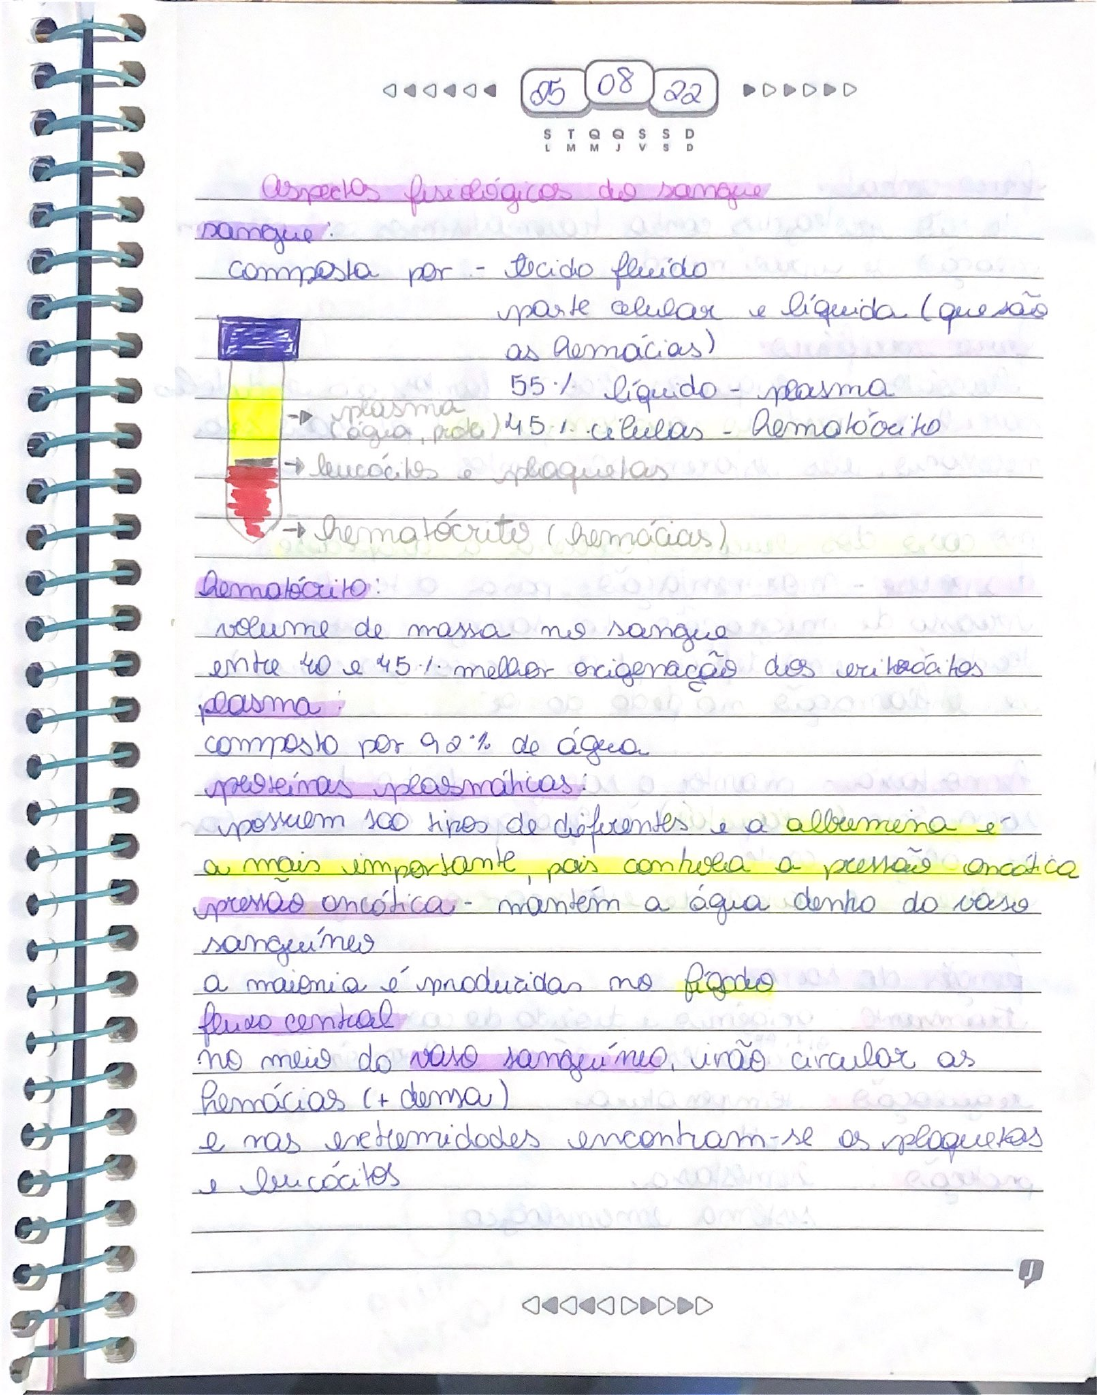 25 08 22
S T Q Q S S D
L M M J V S D
Aspectos fisiológicos do sangue
sangue:
composta por - tecido fluído
parte celular e líquida (que são
as hemácias)
55% líquido - plasma
→ plasma
(água, prote) 45% células - Hematócrito
→ leucócitos e plaquetas
→ hematócrito (hemácias)
Hematócrito:
volume de massa no sangue
entre 40 e 45% melhor oxigenação dos eritrócitos
plasma:
composto por 92% de água
proteínas plasmáticas:
possuem 100 tipos de diferentes e a albumina é
a mais importante, pois controla a pressão oncótica
pressão oncótica - mantém a água dentro do vaso
sanguíneo
a maioria é produzidas no fígado
fluxo central
no meio do vaso sanguíneo, irão circular as
hemácias (+ densa)
e nas extremidades encontram-se as plaquetas
e leucócitos